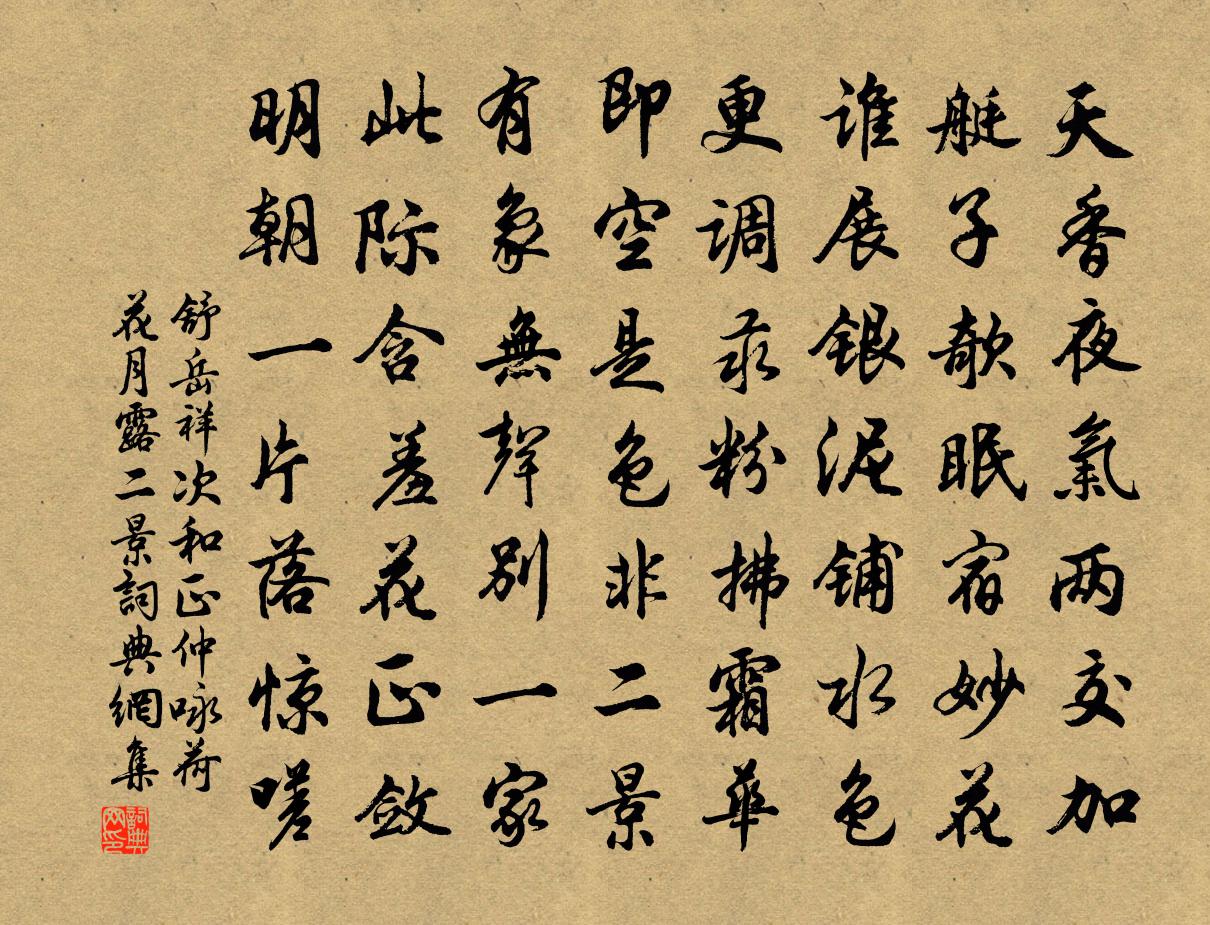 天香夜氣两交加
艇子欹眠宿妙花
谁展银泥铺水色
更调汞粉拂霜華
即空是色非二景
有象無聲别一家
此际含羞花正敛
明朝一片落惊嗟
舒岳祥次和正仲咏荷
花月露二景詞典網集
詞典网印